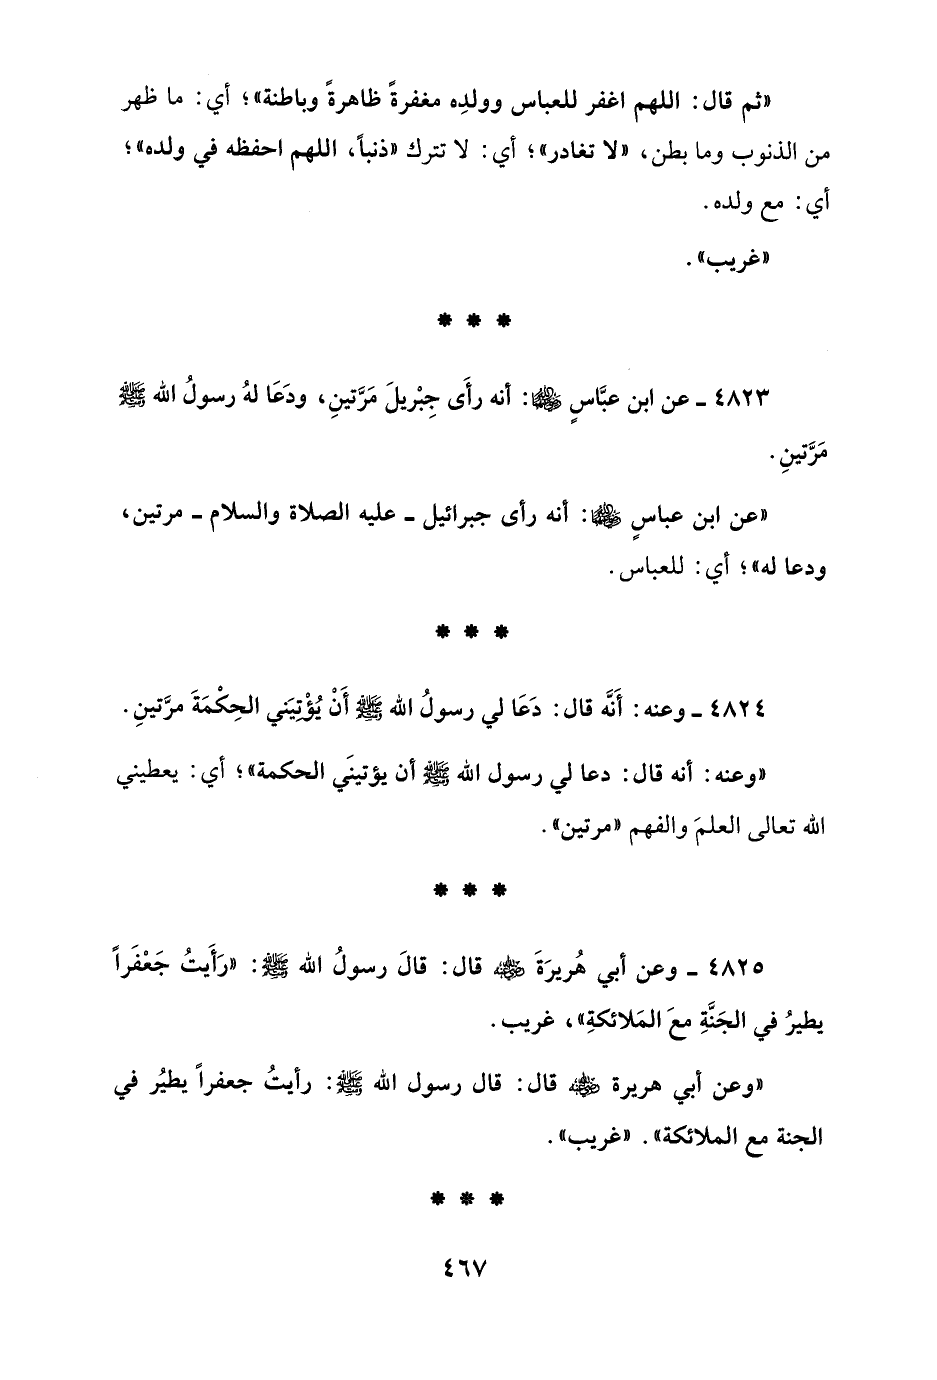 «ثم قال: اللهم اغفر للعباس وولدِه مغفرةً ظاهرةً وباطنة»؛ أي: ما ظهر
من الذنوب وما بطن، «لا تغادر»؛ أي: لا تترك «ذنباً، اللهم احفظه في ولده»؛
أي: مع ولده.
«غريب».
* * *
٤٨٢٣ ـ عن ابن عبَّاسٍ ﵄: أنه رأَى جِبْريلَ مَرَّتينِ، ودَعَا لهُ رسولُ الله ﷺ
مَرَّتينِ.
«عن ابن عباسٍ ﵄: أنه رأى جبرائيل ـ عليه الصلاة والسلام ـ مرتين،
ودعا له»؛ أي: للعباس.
* * *
٤٨٢٤ ـ وعنه: أَنَّه قال: دَعَا لي رسولُ الله ﷺ أَنْ يُؤْتِيَني الحِكْمَةَ مرَّتينِ.
«وعنه: أنه قال: دعا لي رسول الله ﷺ أن يؤتينَي الحكمة»؛ أي: يعطيني
الله تعالى العلمَ والفهم «مرتين».
* * *
٤٨٢٥ ـ وعن أبي هُريرَةَ ﵁ قال: قالَ رسولُ الله ﷺ: «رَأَيتُ جَعْفَراً
يطيرُ في الجَنَّةِ معَ المَلائكةِ»، غريب.
«وعن أبي هريرة ﵁ قال: قال رسول الله ﷺ: رأيتُ جعفراً يطيُر في
الجنة مع الملائكة». «غريب».
* * *
٤٦٧